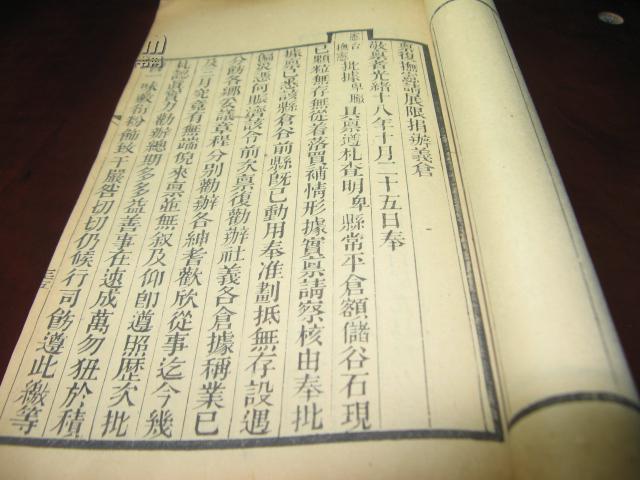 稟復撫憲請展限捐辦義倉
敬稟者光緒十八年十月二十五日奉
憲台撫憲批據卑縣具稟遵札查明卑縣常平倉額儲谷石現
已顆粒無存無從着落買補情形據實稟請察核由奉批
據稟已悉該縣倉谷前縣旣已動用奉准劃抵無存設遇
偏災憑何賑濟該令前次稟復勸辦社義各倉據稱業已
分飭各鄉公議章程分別勸辦各紳耆歡欣從事迄今幾
及三月究竟有無端倪來稟並無叙及仰卽遵照歷次批
札認眞勸辦總期多多益善事在速成萬勿狃於積
一味敷衍粉飾致干嚴咎切切仍候行司飭遵此繳等